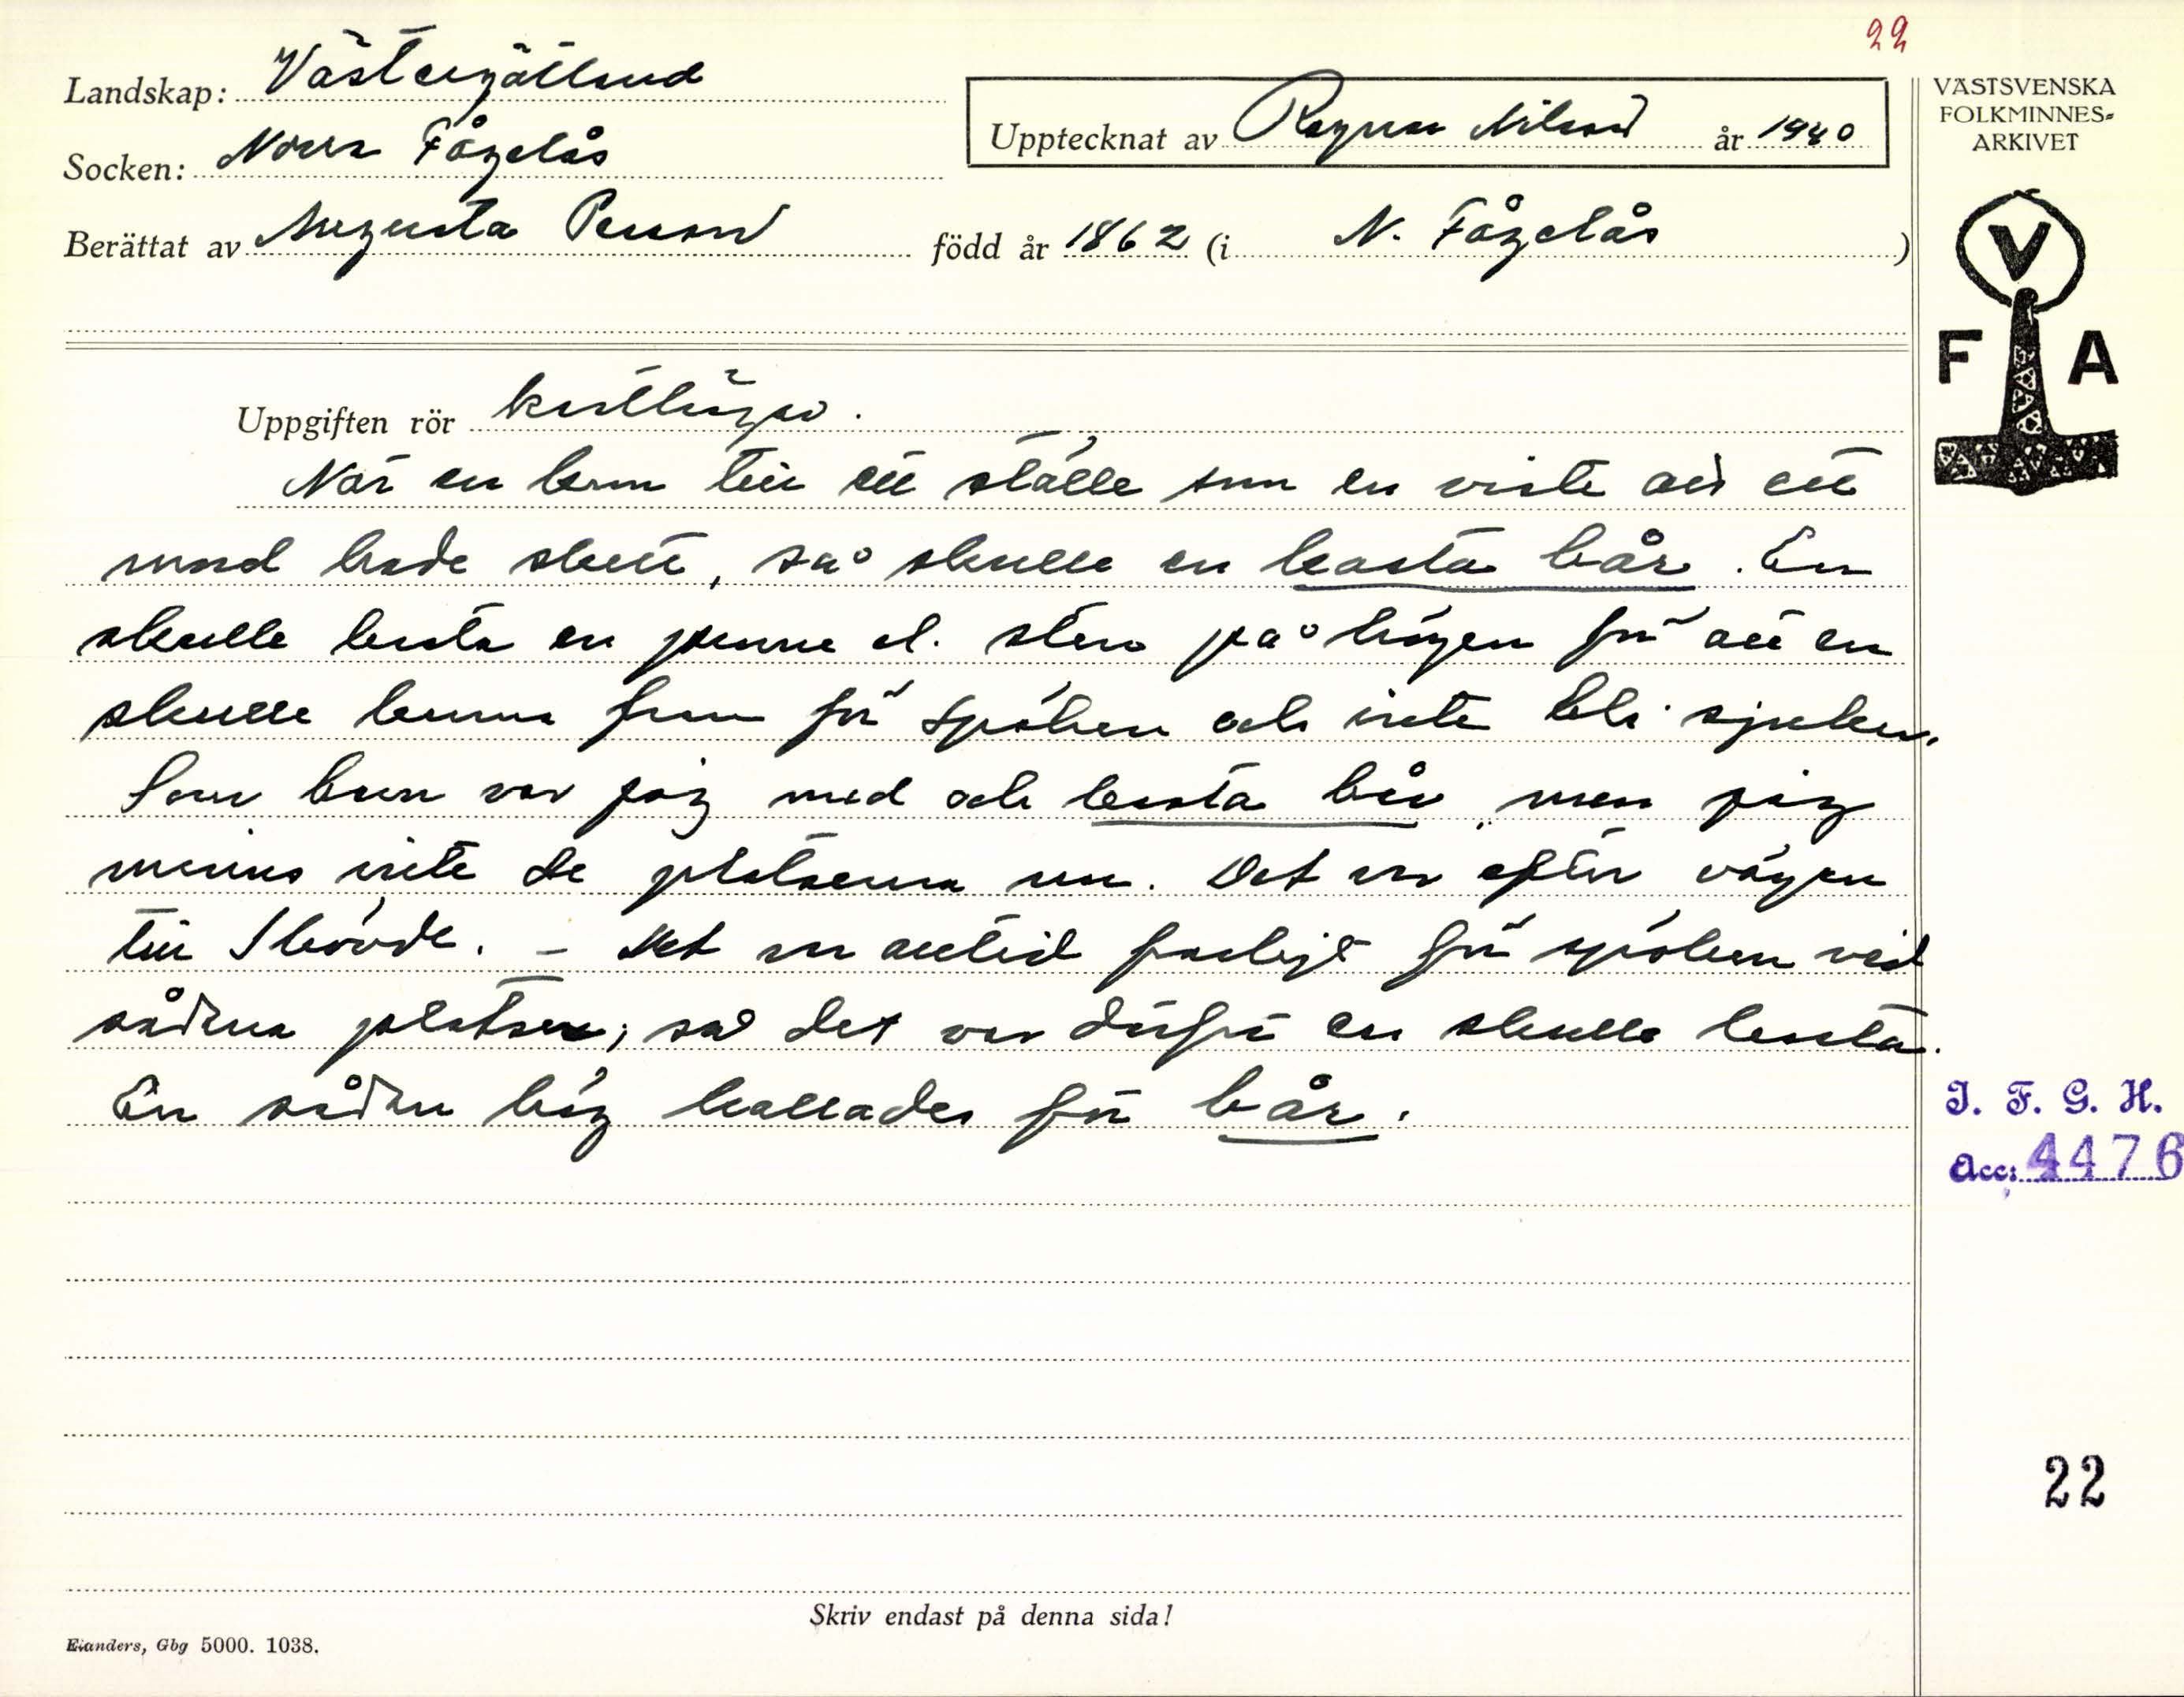 22
Landskap: Västergötland
Socken: Norra Fågelås
Upptecknat av Ragnar Nilsson år 1940
Berättat av Augusta Persson född år 1862 (i N. Fågelås)
VÄSTSVENSKA
FOLKMINNES=
ARKIVET
V
F A
Uppgiften rör kasthögar.
När en kom till ett ställe som en visste att ett
mord hade skett, så skulle en kasta bår. En
skulle kasta en pinne el. sten på högen för att en
skulle komma fram för spöken och inte bli sjuken.
Som barn var jag med och kasta bår men jag
minns inte de platserna nu. Det var efter vägen
till Skövde. – Det var alltid farligt för spöken vid
sådana platser, så det var därför en skulle kasta.
En sådan hög kallades för bår.
I. F. G. H.
Acc: 4476
22
Skriv endast på denna sida!
Elanders, Gbg 5000. 1038.